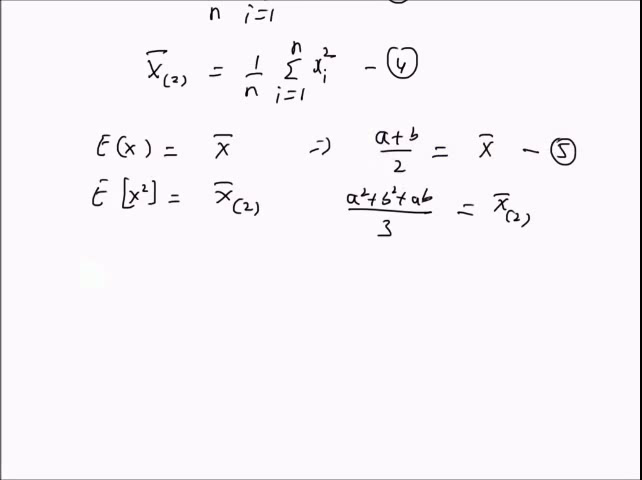 n i=1
X̄(2) = 1/n Σ_{i=1}^{n} x_i² - ④
E(x) = x̄ => (a+b)/2 = x̄ - ⑤
E[x²] = x̄(2) (a²+b²+ab)/3 = x̄(2)